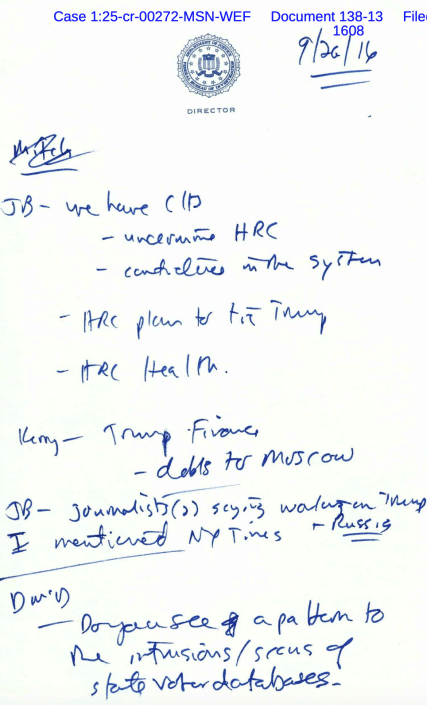 Case 1:25-cr-00272-MSN-WEF Document 138-13 File
1608
9/26/16
DEPARTMENT OF JUSTICE
FEDERAL BUREAU OF INVESTIGATION
DIRECTOR
JB - we have CID
- undermine HRC
- confidence in the system
- HRC plan to tie Trump
- HRC Health.
Kerry - Trump Finance
- debts to Moscow
JB - journalists(2) saying working on Trump
+ Russia
I mentioned NY Times
DWD
- Do you see a pattern to
the intrusions/scans of
state voter databases.